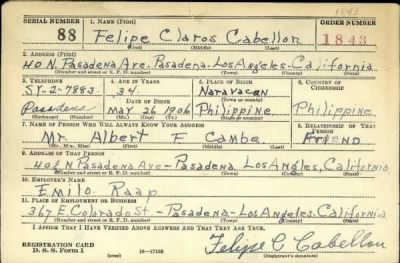 1843
SERIAL NUMBER 1. NAME (Print) ORDER NUMBER
88 Felipe Claros Cabellon 1843
(First) (Middle) (Last)
2. ADDRESS (Print)
40 N. Pasadena Ave. Pasadena. Los Angeles. California
(Number and street or R. F. D. number) (Town) (County) (State)
3. TELEPHONE 4. AGE IN YEARS 5. PLACE OF BIRTH 6. COUNTRY OF CITIZENSHIP
SY-2-7883 34 Naravacan Philippine
DATE OF BIRTH (Town or county)
Pasadena May 26 1906 Philippine
(Exchange) (Number) (Mo.) (Day) (Yr.) (State or country)
7. NAME OF PERSON WHO WILL ALWAYS KNOW YOUR ADDRESS 8. RELATIONSHIP OF THAT PERSON
Mr. Albert F Cambe. Friend
(Mr., Mrs., Miss) (First) (Middle) (Last)
9. ADDRESS OF THAT PERSON
40 N Pasadena Ave - Pasadena. Los Angeles, California
(Number and street or R. F. D. number) (Town) (County) (State)
10. EMPLOYER'S NAME
Emilo Raap
11. PLACE OF EMPLOYMENT OR BUSINESS
367 E. Colorado St - Pasadena - Los Angeles. California
(Number and street or R. F. D. number) (Town) (County) (State)
I AFFIRM THAT I HAVE VERIFIED ABOVE ANSWERS AND THAT THEY ARE TRUE.
REGISTRATION CARD
D. S. S. Form 1 (over) Felipe C Cabellon
(Registrant's signature)